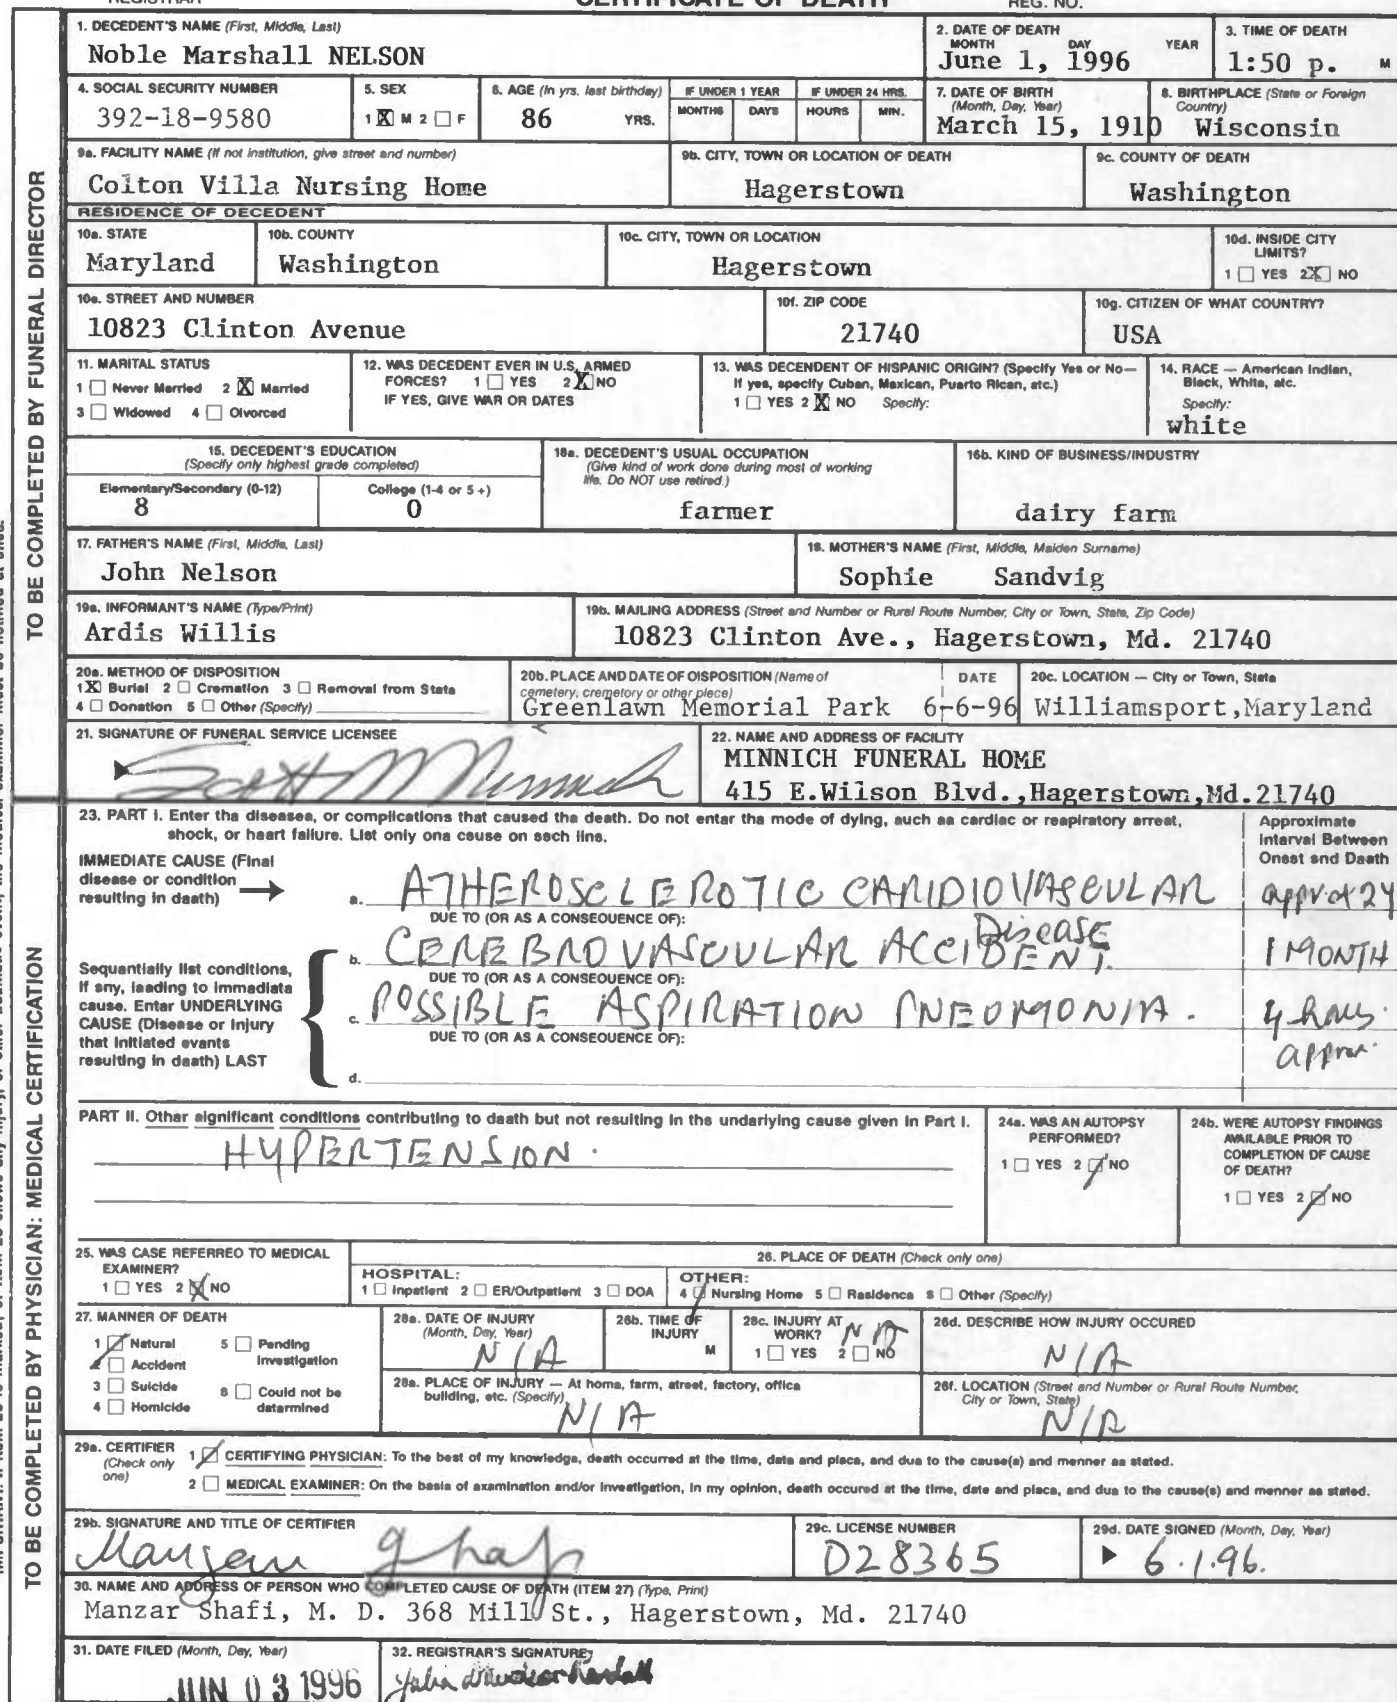 REGISTRAR CERTIFICATE OF DEATH REG. NO.
1. DECEDENT'S NAME (First, Middle, Last)
Noble Marshall NELSON
2. DATE OF DEATH
MONTH DAY YEAR
June 1, 1996
3. TIME OF DEATH
1:50 p. M
4. SOCIAL SECURITY NUMBER
392-18-9580
5. SEX
1 X M 2 ☐ F
6. AGE (In yrs. last birthday)
86 YRS.
IF UNDER 1 YEAR
MONTHS DAYS
IF UNDER 24 HRS.
HOURS MIN.
7. DATE OF BIRTH
(Month, Day, Year)
March 15, 1910
8. BIRTHPLACE (State or Foreign
Country)
Wisconsin
9a. FACILITY NAME (If not institution, give street and number)
Colton Villa Nursing Home
9b. CITY, TOWN OR LOCATION OF DEATH
Hagerstown
9c. COUNTY OF DEATH
Washington
RESIDENCE OF DECEDENT
10a. STATE
Maryland
10b. COUNTY
Washington
10c. CITY, TOWN OR LOCATION
Hagerstown
10d. INSIDE CITY
LIMITS?
1 ☐ YES 2 X NO
10e. STREET AND NUMBER
10823 Clinton Avenue
10f. ZIP CODE
21740
10g. CITIZEN OF WHAT COUNTRY?
USA
11. MARITAL STATUS
1 ☐ Never Married 2 X Married
3 ☐ Widowed 4 ☐ Divorced
12. WAS DECEDENT EVER IN U.S. ARMED
FORCES? 1 ☐ YES 2 X NO
IF YES, GIVE WAR OR DATES
13. WAS DECENDENT OF HISPANIC ORIGIN? (Specify Yes or No—
If yes, specify Cuban, Mexican, Puerto Rican, etc.)
1 ☐ YES 2 X NO Specify:
14. RACE — American Indian,
Black, White, etc.
Specify:
white
15. DECEDENT'S EDUCATION
(Specify only highest grade completed)
Elementary/Secondary (0-12)
8
College (1-4 or 5+)
0
16a. DECEDENT'S USUAL OCCUPATION
(Give kind of work done during most of working
life. Do NOT use retired.)
farmer
16b. KIND OF BUSINESS/INDUSTRY
dairy farm
17. FATHER'S NAME (First, Middle, Last)
John Nelson
18. MOTHER'S NAME (First, Middle, Maiden Surname)
Sophie Sandvig
19a. INFORMANT'S NAME (Type/Print)
Ardis Willis
19b. MAILING ADDRESS (Street and Number or Rural Route Number, City or Town, State, Zip Code)
10823 Clinton Ave., Hagerstown, Md. 21740
20a. METHOD OF DISPOSITION
1 X Burial 2 ☐ Cremation 3 ☐ Removal from State
4 ☐ Donation 5 ☐ Other (Specify)
20b. PLACE AND DATE OF DISPOSITION (Name of
cemetery, crematory or other place)
Greenlawn Memorial Park
DATE
6-6-96
20c. LOCATION — City or Town, State
Williamsport,Maryland
21. SIGNATURE OF FUNERAL SERVICE LICENSEE
22. NAME AND ADDRESS OF FACILITY
MINNICH FUNERAL HOME
415 E.Wilson Blvd.,Hagerstown,Md.21740
TO BE COMPLETED BY FUNERAL DIRECTOR
23. PART I. Enter the diseases, or complications that caused the death. Do not enter the mode of dying, such as cardiac or respiratory arrest,
shock, or heart failure. List only one cause on each line.
Approximate
Interval Between
Onset and Death
IMMEDIATE CAUSE (Final
disease or condition
resulting in death)
a. ATHEROSCLEROTIC CARIDIOVASCULAR
Disease
DUE TO (OR AS A CONSEQUENCE OF):
b. CEREBROVASCULAR ACCIDENT. 1 MONTH
DUE TO (OR AS A CONSEQUENCE OF):
Sequentially list conditions,
if any, leading to immediate
cause. Enter UNDERLYING
CAUSE (Disease or injury
that initiated events
resulting in death) LAST
c. POSSIBLE ASPIRATION PNEOMONIA.
DUE TO (OR AS A CONSEQUENCE OF):
d.
PART II. Other significant conditions contributing to death but not resulting in the underlying cause given in Part I.
HYPERTENSION.
24a. WAS AN AUTOPSY
PERFORMED?
1 ☐ YES 2 ☑ NO
24b. WERE AUTOPSY FINDINGS
AVAILABLE PRIOR TO
COMPLETION OF CAUSE
OF DEATH?
1 ☐ YES 2 ☑ NO
25. WAS CASE REFERRED TO MEDICAL
EXAMINER?
1 ☐ YES 2 X NO
26. PLACE OF DEATH (Check only one)
HOSPITAL:
1 ☐ Inpatient 2 ☐ ER/Outpatient 3 ☐ DOA
OTHER:
4 ☑ Nursing Home 5 ☐ Residence 6 ☐ Other (Specify)
27. MANNER OF DEATH
1 ☑ Natural 5 ☐ Pending
Investigation
2 ☐ Accident
3 ☐ Suicide 6 ☐ Could not be
determined
4 ☐ Homicide
28a. DATE OF INJURY
(Month, Day, Year)
N/A
28b. TIME OF
INJURY
M
28c. INJURY AT
WORK? N/A
1 ☐ YES 2 ☐ NO
28d. DESCRIBE HOW INJURY OCCURED
N/A
28e. PLACE OF INJURY — At home, farm, street, factory, office
building, etc. (Specify)
N/A
28f. LOCATION (Street and Number or Rural Route Number,
City or Town, State)
N/A
29a. CERTIFIER
(Check only
one)
1 ☑ CERTIFYING PHYSICIAN: To the best of my knowledge, death occurred at the time, date and place, and due to the cause(s) and manner as stated.
2 ☐ MEDICAL EXAMINER: On the basis of examination and/or investigation, in my opinion, death occured at the time, date and place, and due to the cause(s) and manner as stated.
29b. SIGNATURE AND TITLE OF CERTIFIER
29c. LICENSE NUMBER
D28365
29d. DATE SIGNED (Month, Day, Year)
6.1.96.
30. NAME AND ADDRESS OF PERSON WHO COMPLETED CAUSE OF DEATH (ITEM 27) (Type, Print)
Manzar Shafi, M. D. 368 Mill St., Hagerstown, Md. 21740
31. DATE FILED (Month, Day, Year)
JUN 03 1996
32. REGISTRAR'S SIGNATURE
TO BE COMPLETED BY PHYSICIAN: MEDICAL CERTIFICATION